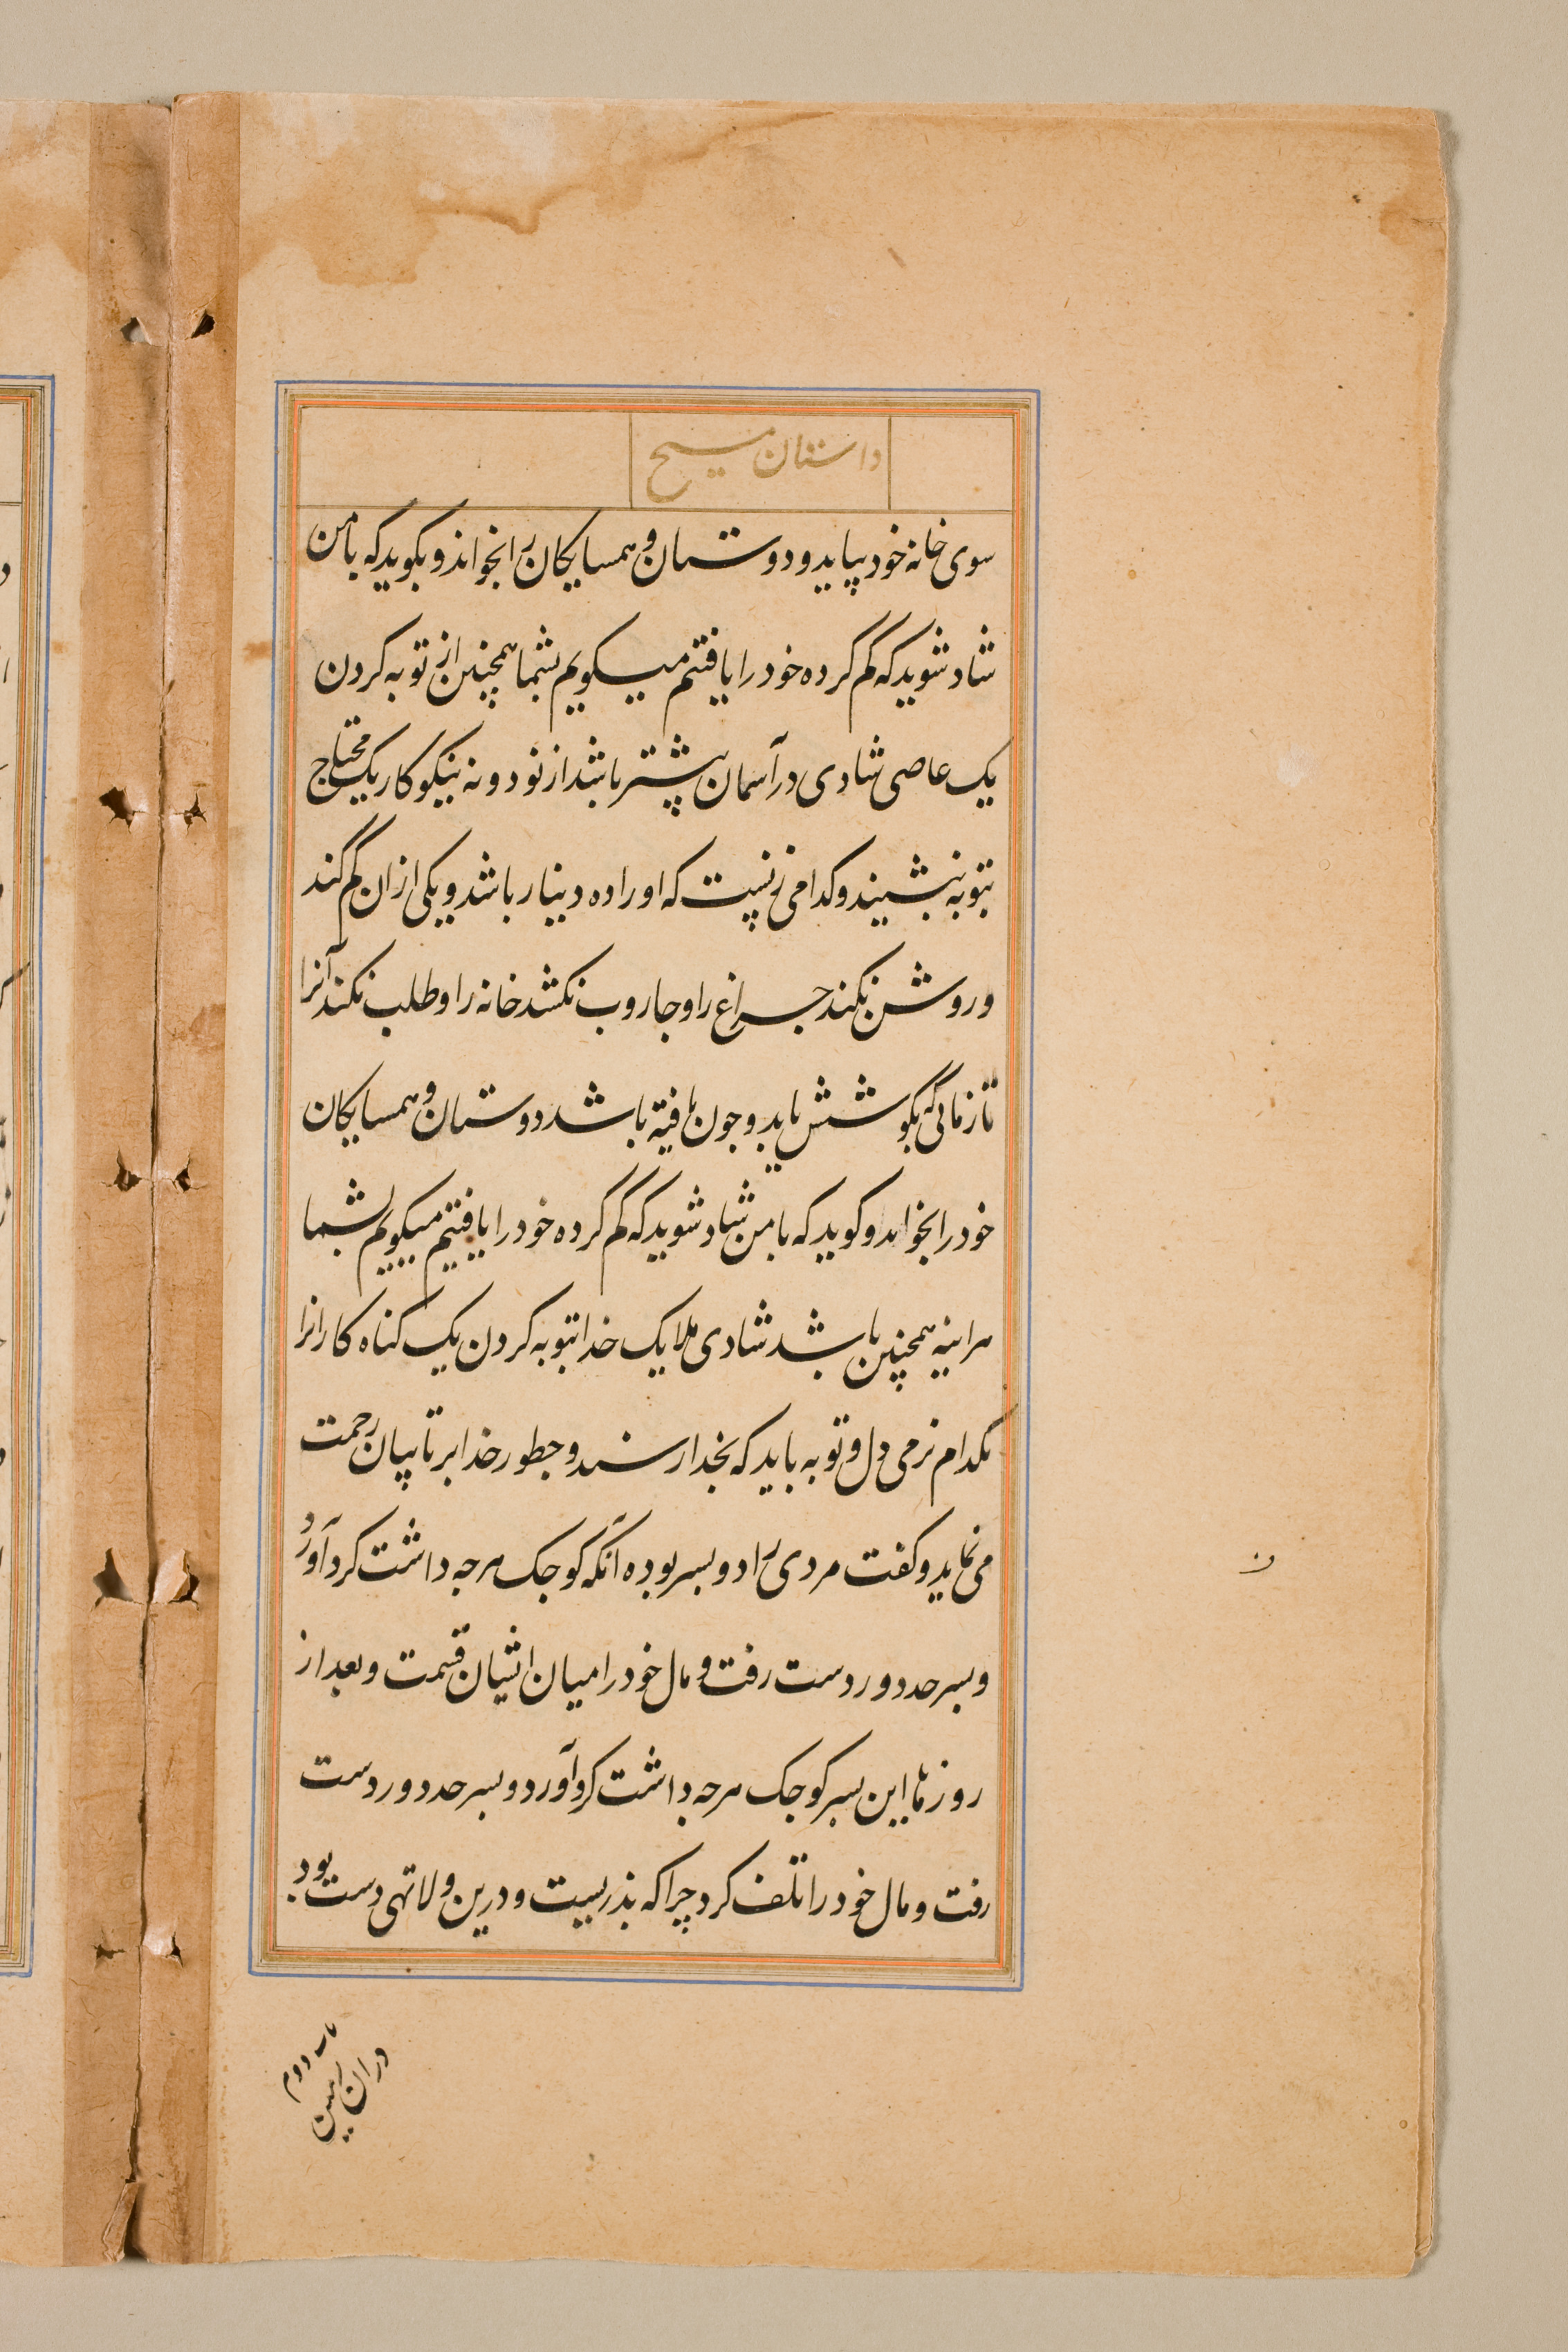 داستان مسیح
سوی خانه خود بیاید و دوستان و همسایکان را بخواند و بکوید که با من
شاد شوید که کم کرده خود را یافتم میکویم بشما همچنین از توبه کردن
یک عاصی شادی در آسمان بیشتر باشد از نود و نه نیکو کار یک محتاج
بتوبه نیشیند و کدام زنیست که او را ده دینار باشد و یکی از ان کم کند
و روشن نکند چراغ را و جاروب نکشد خانه را و طلب نکند آنرا
تا زمانی که بکوشش یابد و چون یافته باشد دوستان و همسایکان
خود را بخواند و کوید که با من شاد شوید که کم کرده خود را یافتیم میکویم بشما
هراینه همچنین باشد شادی ملایک خدا بتوبه کردن یک کناه کار انرا
بکدام نرمی دل و توبه باید که بخدا رسند و جطور خدا بر تایبان رحمت
می نماید و کفت مردی را دو بسر بوده آنکه کوجک هرجه داشت کرد آورد
و بسرحد دور دست رفت و مال خود را میان ایشان قسمت و بعد از
روزها این بسر کوجک هرجه داشت کرد آورد و بسرحد دور دست
رفت و مال خود را تلف کرد چرا که بذریست و درین ولا تهی دست بود
ن
دران زمین